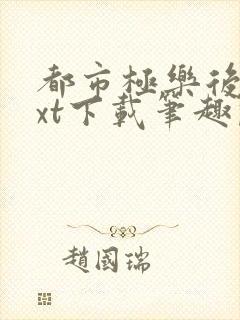 都市極樂後
xt下載筆趣
趙國瑞